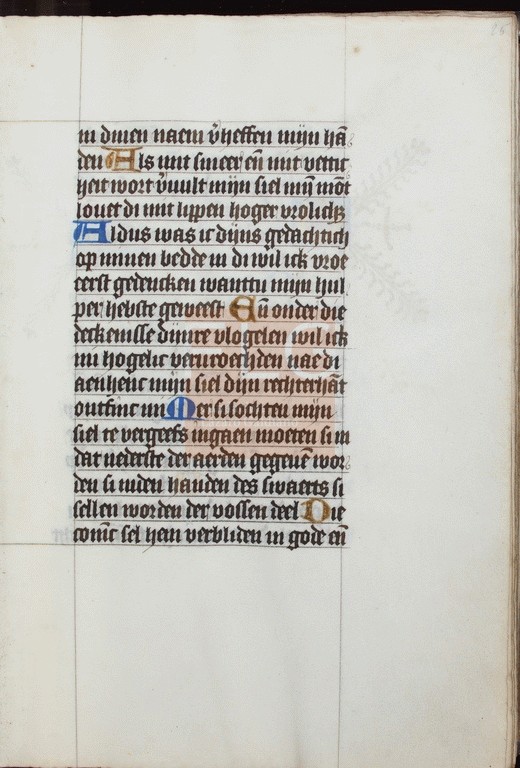 in dinen naem v̄heffen mijn hā
den Als mit smeer eñ mit vettic
heit wort v̄vult mijn siel mijn mōt
louet di mit lippen hoger vrolich;
Aldus was ic dijns gedachtich
op minen bedde in di wil ick vroe
eerst gedencken wanttu mijn hul
per hebste geweest Eñ onder die
deckenisse dinre vlogelen wil ick
mi hogelic vervroechden nae di
aenhenc mijn siel dijn rechterhāt
ontfinc mi Mer si sochten mijn
siel te vergeefs ingaen moeten si in
dat nederste der aerden gegeuē wor
den si inden handen des swaerts si
sellen worden der vossen deel Die
coninc sel hem verbliden in gode eñ